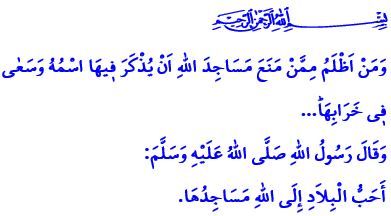 بِسْمِ اللهِ الرَّحْمٰنِ الرَّحِيمِ
وَمَنْ اَظْلَمُ مِمَّنْ مَنَعَ مَسَاجِدَ اللهِ اَنْ يُذْكَرَ ف۪يهَا اسْمُهُ وَسَعٰى
ف۪ي خَرَابِهَاۜ...
وَقَالَ رَسُولُ اللهِ صَلَّى اللهُ عَلَيْهِ وَسَلَّمَ:
أَحَبُّ الْبِلَادِ إِلَى اللهِ مَسَاجِدُهَا.